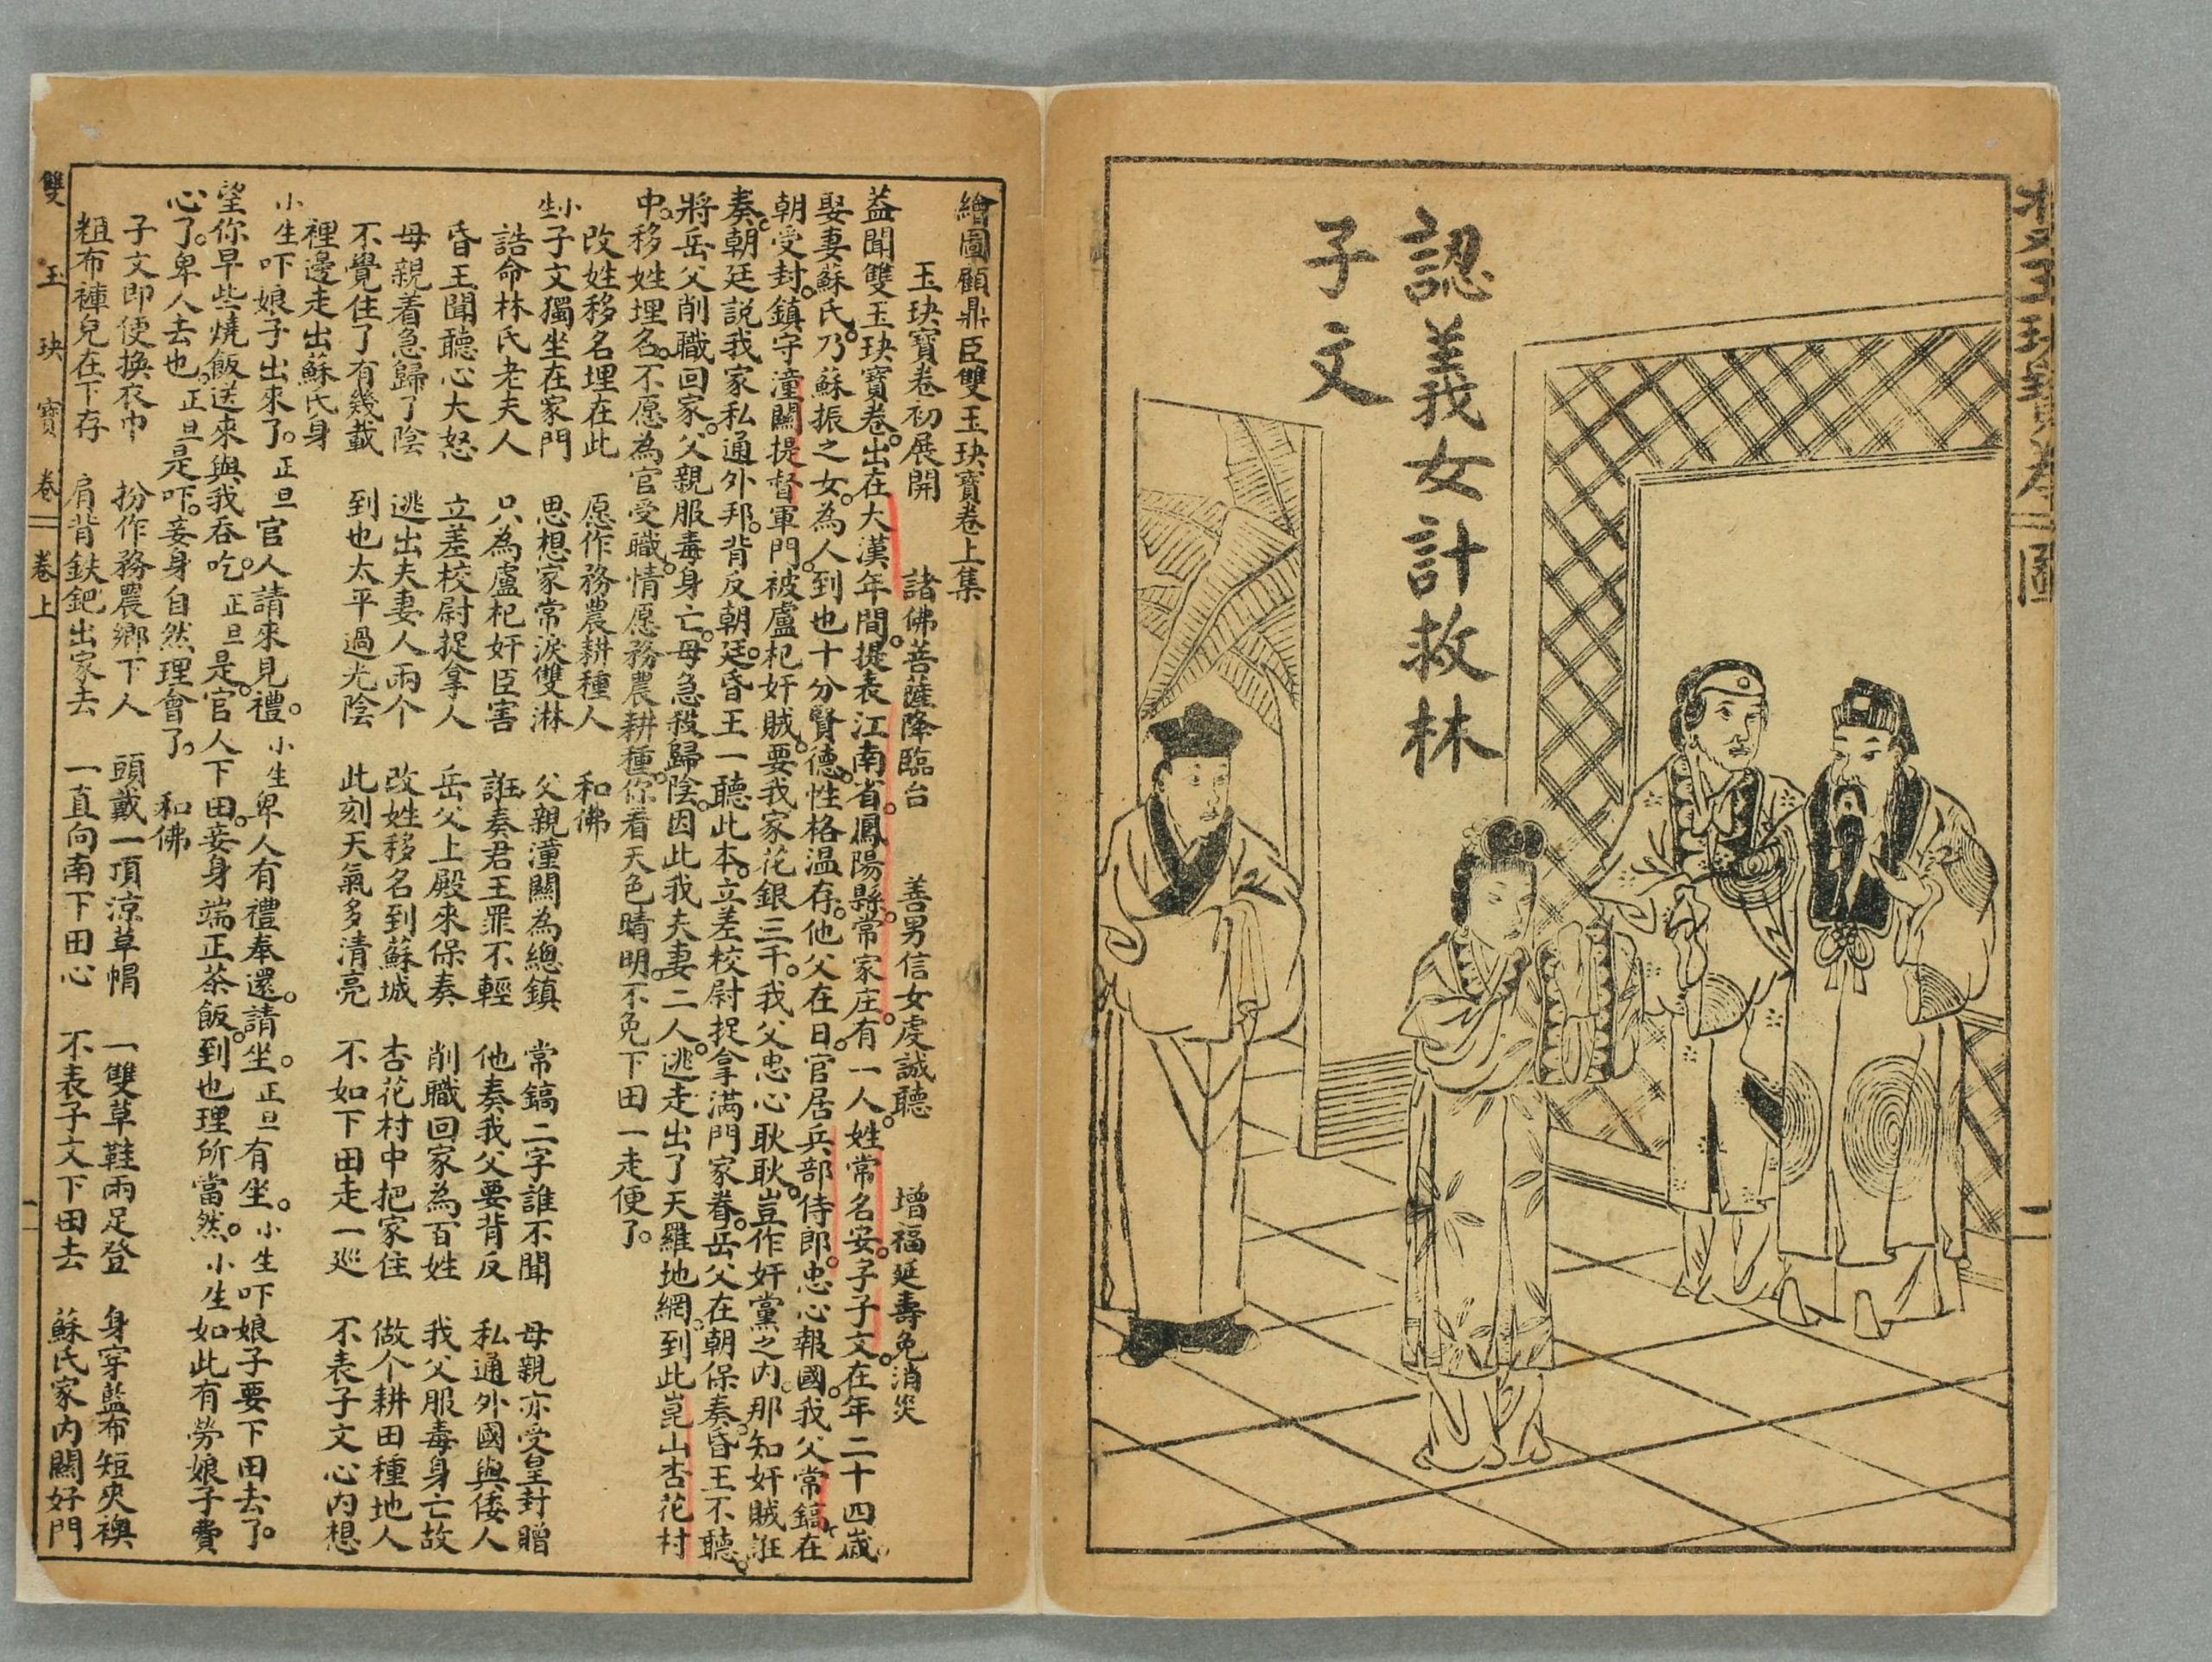 雙玉玦寶卷 圖 二
認義女計救林
子文
繪圖顧鼎臣雙玉玦寶卷上集
玉玦寶卷初展開 諸佛菩薩降臨台 善男信女虔誠聽 增福延壽免消災
葢聞雙玉玦寶卷。出在大漢年間。提表江南省。鳳陽縣。常家庄。有一人。姓常名安。子子文。在年二十四歲。
娶妻蘇氏。乃蘇振之女。為人到也十分賢德。性格溫存。他父在日。官居兵部侍郎。忠心報國。我父常鎬。在
朝受封。鎮守潼關提督軍門。被盧杞奸賊。要我家花銀三千。我父忠心耿耿。豈作奸黨之內。那知奸賊誑
奏朝廷說我家私通外邦。背反朝廷。昏王一聽此本。立差校尉捉拿满門家眷。岳父在朝保奏。昏王不聽。
將岳父削職回家。父親服毒身亡。母急殺歸陰。因此我夫妻二人。逃走出了天羅地網。到此崑山杏花村
中。移姓埋名。不愿為官受職。情愿務農耕種。你看天色晴明。不免下田一走便了。
改姓移名埋在此 愿作務農耕種人 和佛
小生子文獨坐在家門 思想家常淚雙淋 父親潼關為總鎮 常鎬二字誰不聞 母親亦受皇封贈
誥命林氏老夫人 只為盧杞奸臣害 誑奏君王罪不輕 他奏我父要背反 私通外國與倭人
昏王聞聽心大怒 立差校尉捉拿人 岳父上殿來保奏 削職回家為百姓 我父服毒身亡故
母親着急歸了陰 逃出夫妻人兩个 改姓移名到蘇城 杏花村中把家住 做个耕田種地人
不覺住了有幾載 到也太平過光陰 此刻天氣多清亮 不如下田走一巡 不表子文心內想
裡邊走出蘇氏身
小生吓娘子出來了。正旦官人請來見禮。小生卑人有禮奉還。請坐。正旦有坐。小生吓娘子要下田去了。
望你早些燒飯送來與我吞吃。正旦是。官人下田。妾身端正茶飯。到也理所當然。小生如此有勞娘子費
心了。卑人去也。正旦是吓。妾身自然理會了。 和佛
子文即便換衣巾 扮作務農鄉下人 頭戴一頂涼草帽 一雙草鞋兩足登 身穿藍布短夾襖
粗布褲兒在下存 肩背鉄鈀出家去 一直向南下田心 不表子文下田去 蘇氏家內關好門
雙玉玦寶卷 卷上 一